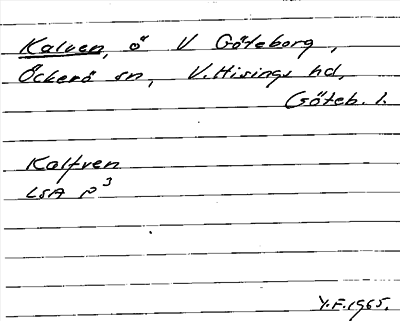 Kalven, ö V Göteborg,
Öckerö sn, V. Hisings hd,
Göteb. l.
Kalfren
LSA P³
Y.F. 1965.